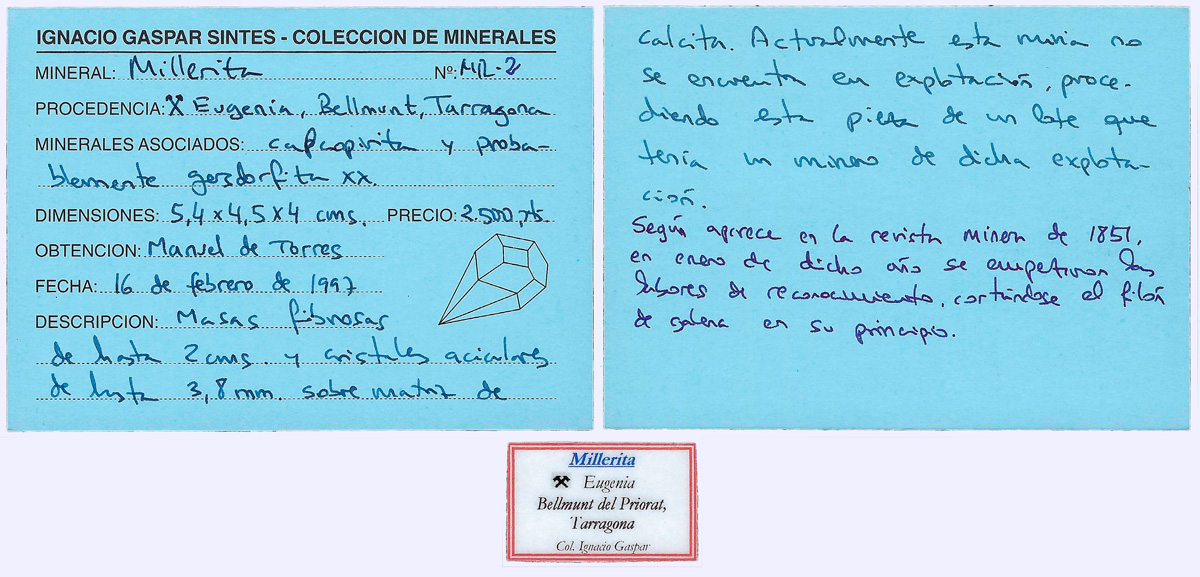 IGNACIO GASPAR SINTES - COLECCION DE MINERALES
MINERAL: Millerita Nº: ML-2
PROCEDENCIA: ⚒ Eugenia, Bellmunt, Tarragona
MINERALES ASOCIADOS: calcopirita y proba-
blemente gersdorfita xx.
DIMENSIONES: 5,4 x 4,5 x 4 cms. PRECIO: 2.500,pts
OBTENCION: Manuel de Torres
FECHA: 16 de febrero de 1997
DESCRIPCION: Masas fibrosas
de hasta 2 cms. y cristales aciculares
de hasta 3,8 mm. sobre matriz de
calcita. Actualmente esta mina no
se encuentra en explotación, proce-
diendo esta pieza de un lote que
tenía un minero de dicha explota-
ción.
Según aparece en la revista minera de 1851,
en enero de dicho año se empezaron las
labores de reconocimiento, cortándose el filón
de galena en su principio.
Millerita
⚒ Eugenia
Bellmunt del Priorat,
Tarragona
Col. Ignacio Gaspar